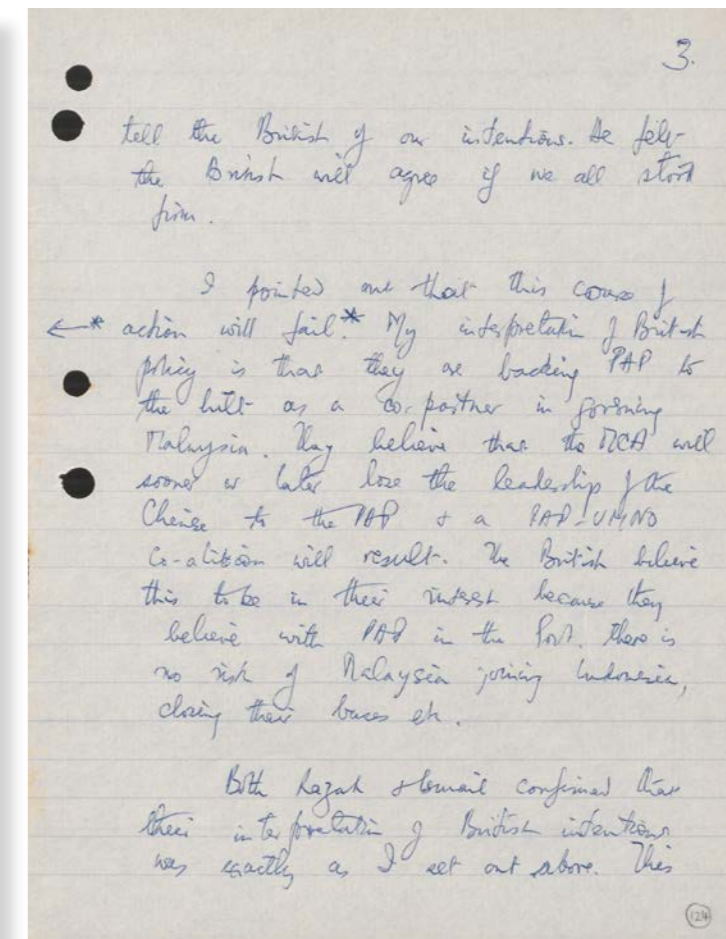 3.
tell the British of our intentions. He felt
the British will agree if we all stood
firm.
I pointed out that this course of
←* action will fail.* My interpretation of British
policy is that they are backing PAP to
the hilt as a co-partner in governing
Malaysia. They believe that the MCA will
sooner or later lose the leadership of the
Chinese to the PAP & a PAP-UMNO
Co-alition will result. The British believe
this to be in their interest because they
believe with PAP in the Govt. there is
no risk of Malaysia joining Indonesia,
closing their bases etc.
Both Razak & Ismail confirmed that
their interpretation of British intentions
was exactly as I set out above. This
124